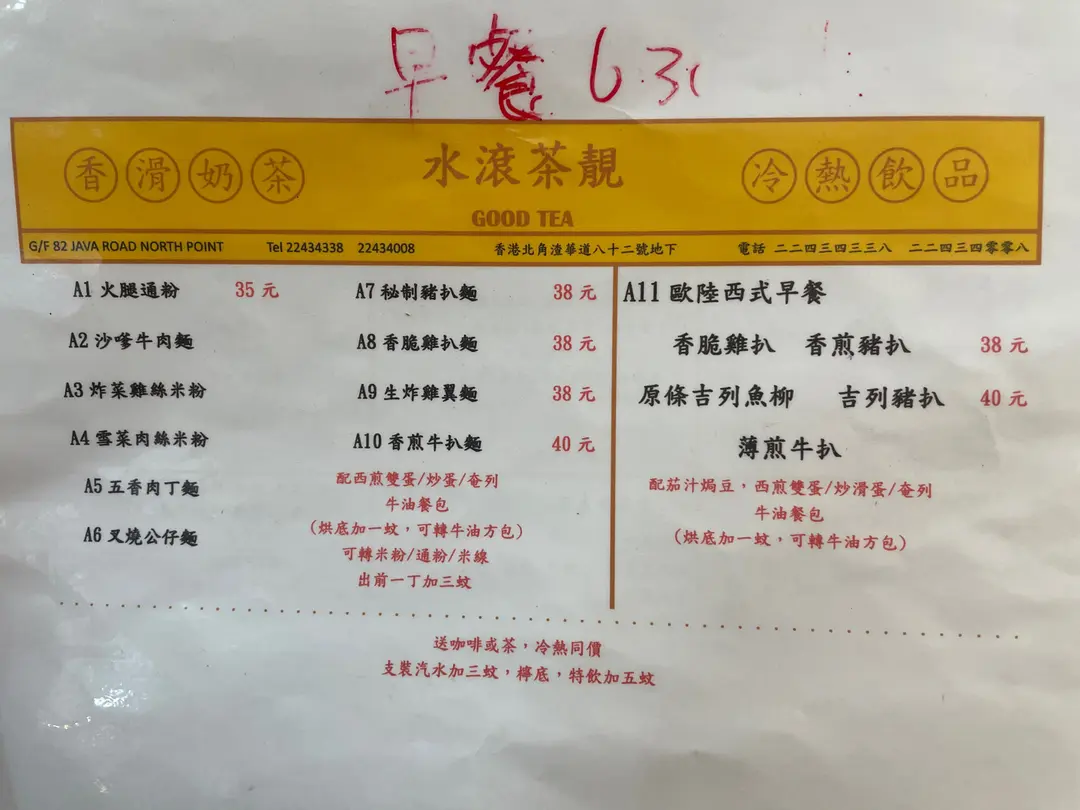 早餐 630
香滑奶茶 水滾茶靚 冷熱飲品
GOOD TEA
G/F 82 JAVA ROAD NORTH POINT Tel 22434338 22434008 香港北角渣華道八十二號地下 電話 二二四三四三三八 二二四三四零零八
A1 火腿通粉 35 元
A2 沙嗲牛肉麵
A3 炸菜雞絲米粉
A4 雪菜肉絲米粉
A5 五香肉丁麵
A6 叉燒公仔麵
A7 秘制豬扒麵 38 元
A8 香脆雞扒麵 38 元
A9 生炸雞翼麵 38 元
A10 香煎牛扒麵 40 元
配西煎雙蛋/炒蛋/奄列
牛油餐包
(烘底加一蚊，可轉牛油方包)
可轉米粉/通粉/米線
出前一丁加三蚊
A11 歐陸西式早餐
香脆雞扒 香煎豬扒 38 元
原條吉列魚柳 吉列豬扒 40 元
薄煎牛扒
配茄汁焗豆，西煎雙蛋/炒滑蛋/奄列
牛油餐包
(烘底加一蚊，可轉牛油方包)
送咖啡或茶，冷熱同價
支裝汽水加三蚊，檸底，特飲加五蚊